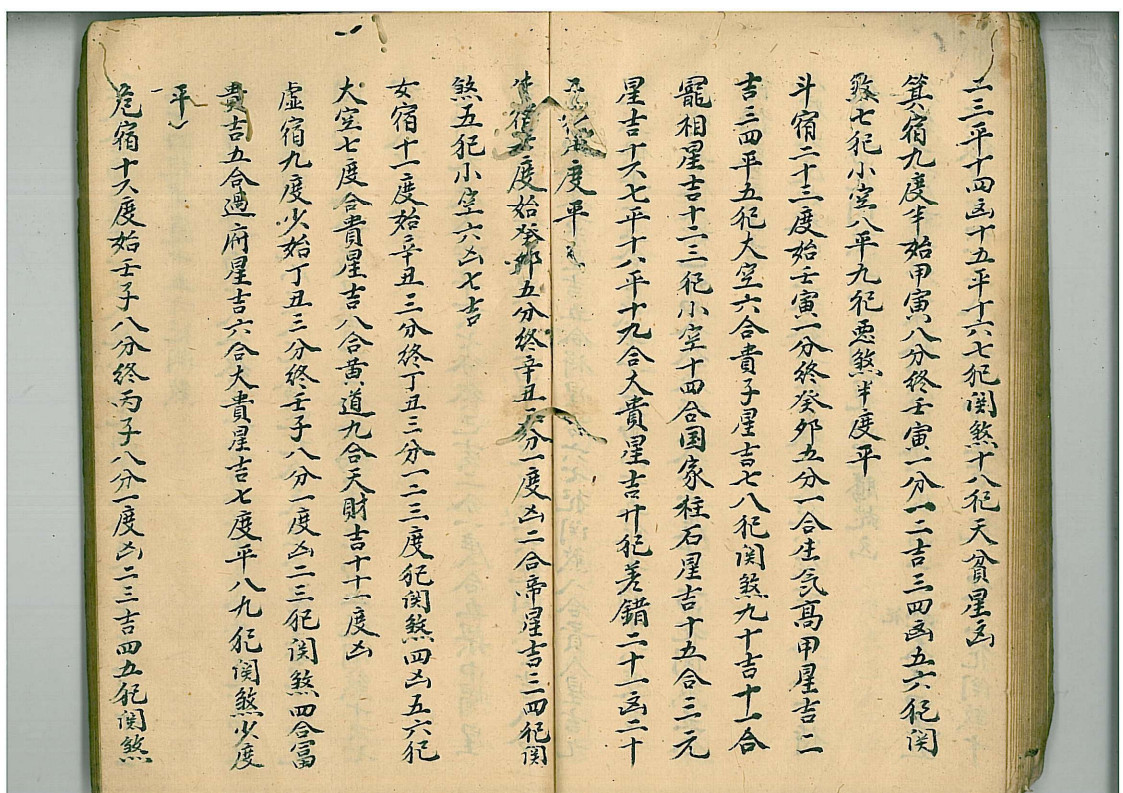 二三平十四凶十五平十六七犯関煞十八犯天貧星凶
箕宿九度半始甲寅八分終壬寅一分一二吉三四凶五六犯関
煞七犯小空八平九犯悪煞半度平
斗宿二十三度始壬寅一分終癸丑五分一合生気高甲星吉二
吉三四平五犯大空六合貴子星吉七八犯関煞九十吉十一合
寵相星吉十二三犯小空十四合国家柱石星吉十五合三元
星吉十六七平十八平十九合大貴星吉廿犯差錯二十一凶二十
度平
宿七度始癸丑五分終辛丑分一度凶二合帝星吉三四犯関
煞五犯小空六凶七吉
女宿十一度始辛丑三分終丁丑三分一二三度犯関煞四凶五六犯
大空七度合貴星吉八合黄道九合天財吉十十一度凶
虚宿九度少始丁丑三分終壬子八分一度凶二三犯関煞四合富
貴吉五合過府星吉六合大貴星吉七度平八九犯関煞少度
平
危宿十六度始壬子八分終丙子八分一度凶二三吉四五犯関煞